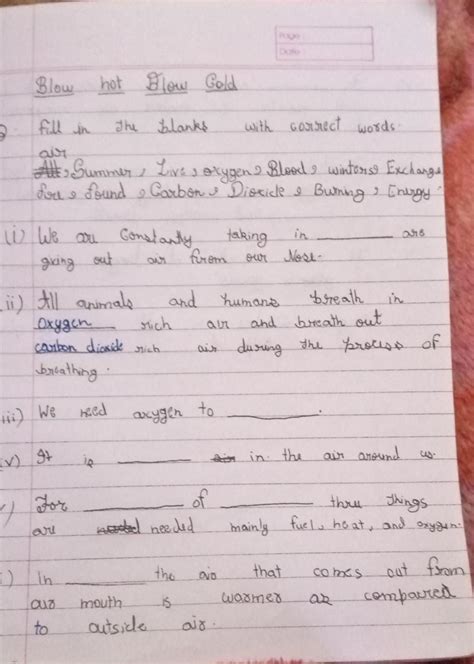 Page:
Date:
Blow hot Blow Cold
Q. fill in the blanks with correct words.
air
Summer, Live, oxygen, Blood, winters, Exchange
found, Carbon, Dioxide, Burning, Energy.
(i) We are Constantly taking in ________ are
giving out air from our Nose.
ii) All animals and humans breath in
oxygen rich air and breath out
carbon dioxide rich air during the process of
breathing.
iii) We need oxygen to ________.
iv) It is ________ in the air around us.
v) For ________ of ________ three things
are needed mainly fuel, heat, and oxygen.
i) In ________ the air that comes out from
our mouth is warmer as compared
to outside air.